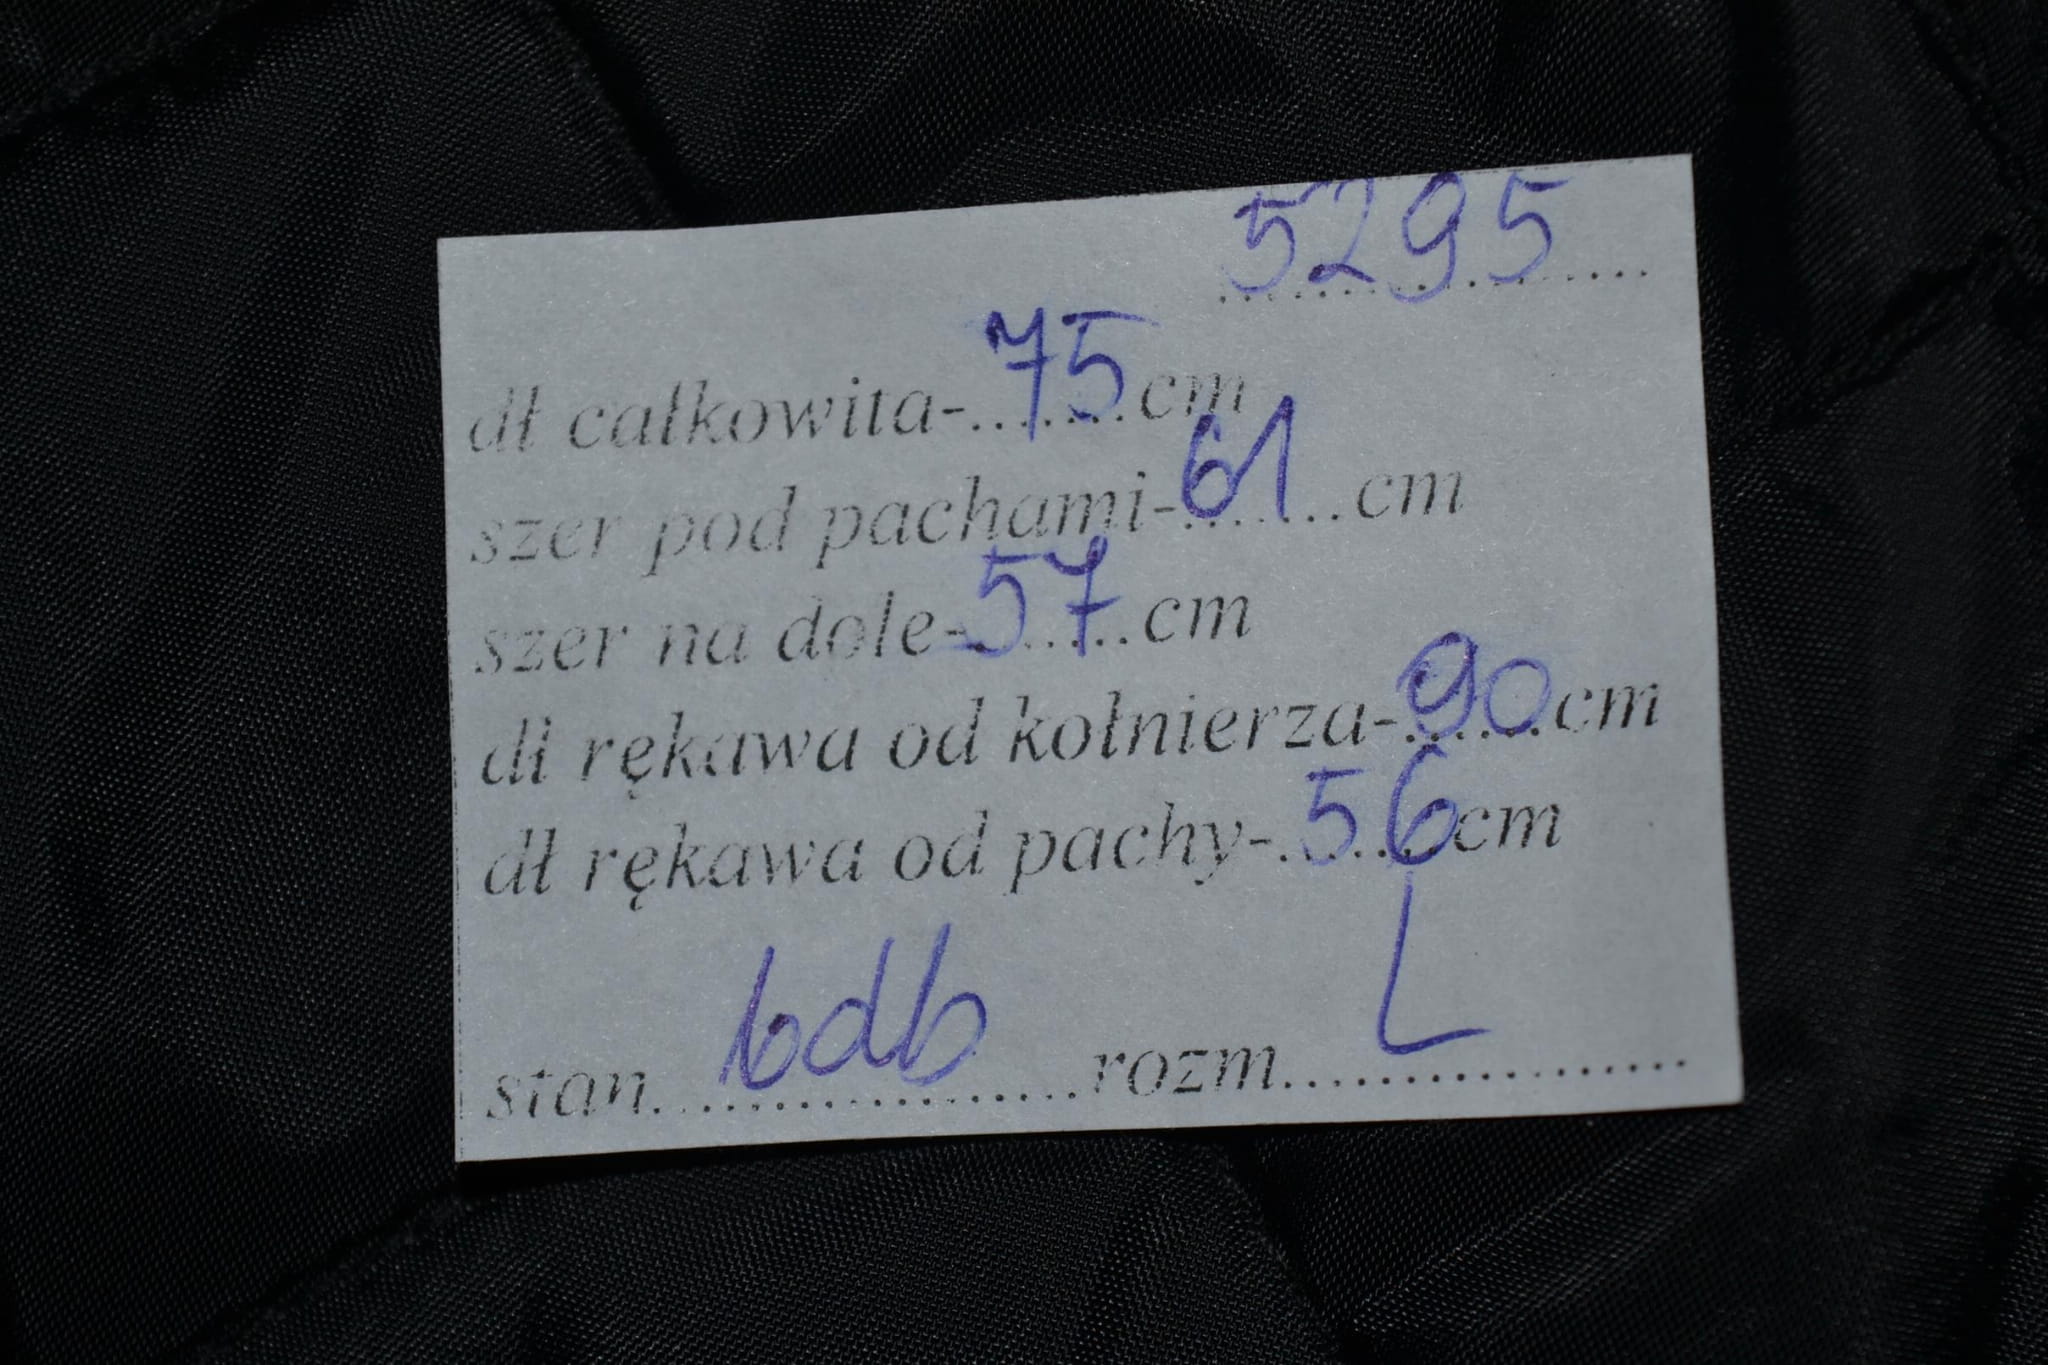 5295
dł całkowita-75cm
szer pod pachami-61cm
szer na dole-57cm
dł rękawa od kołnierza-90cm
dł rękawa od pachy-56cm
stan bdb rozm L